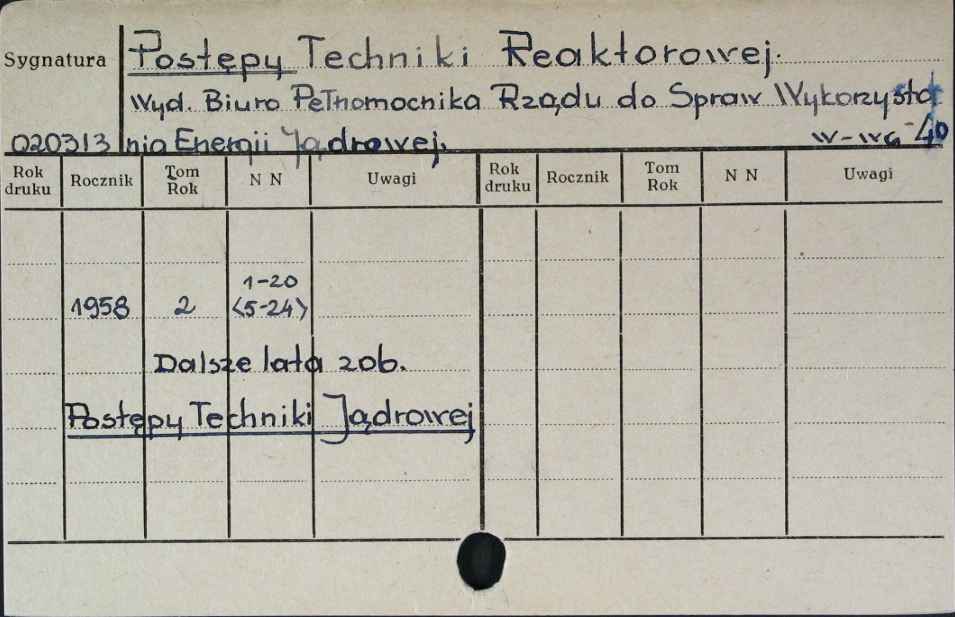 Sygnatura
Postępy Techniki Reaktorowej.
Wyd. Biuro Pełnomocnika Rządu do Spraw Wykorzysta
020313 nia Energii Jądrowej. W-wa 40
Rok druku Rocznik Tom Rok N N Uwagi Rok druku Rocznik Tom Rok N N Uwagi
1-20
1958 2 (5-24)
Dalsze lata zob.
Postępy Techniki Jądrowej